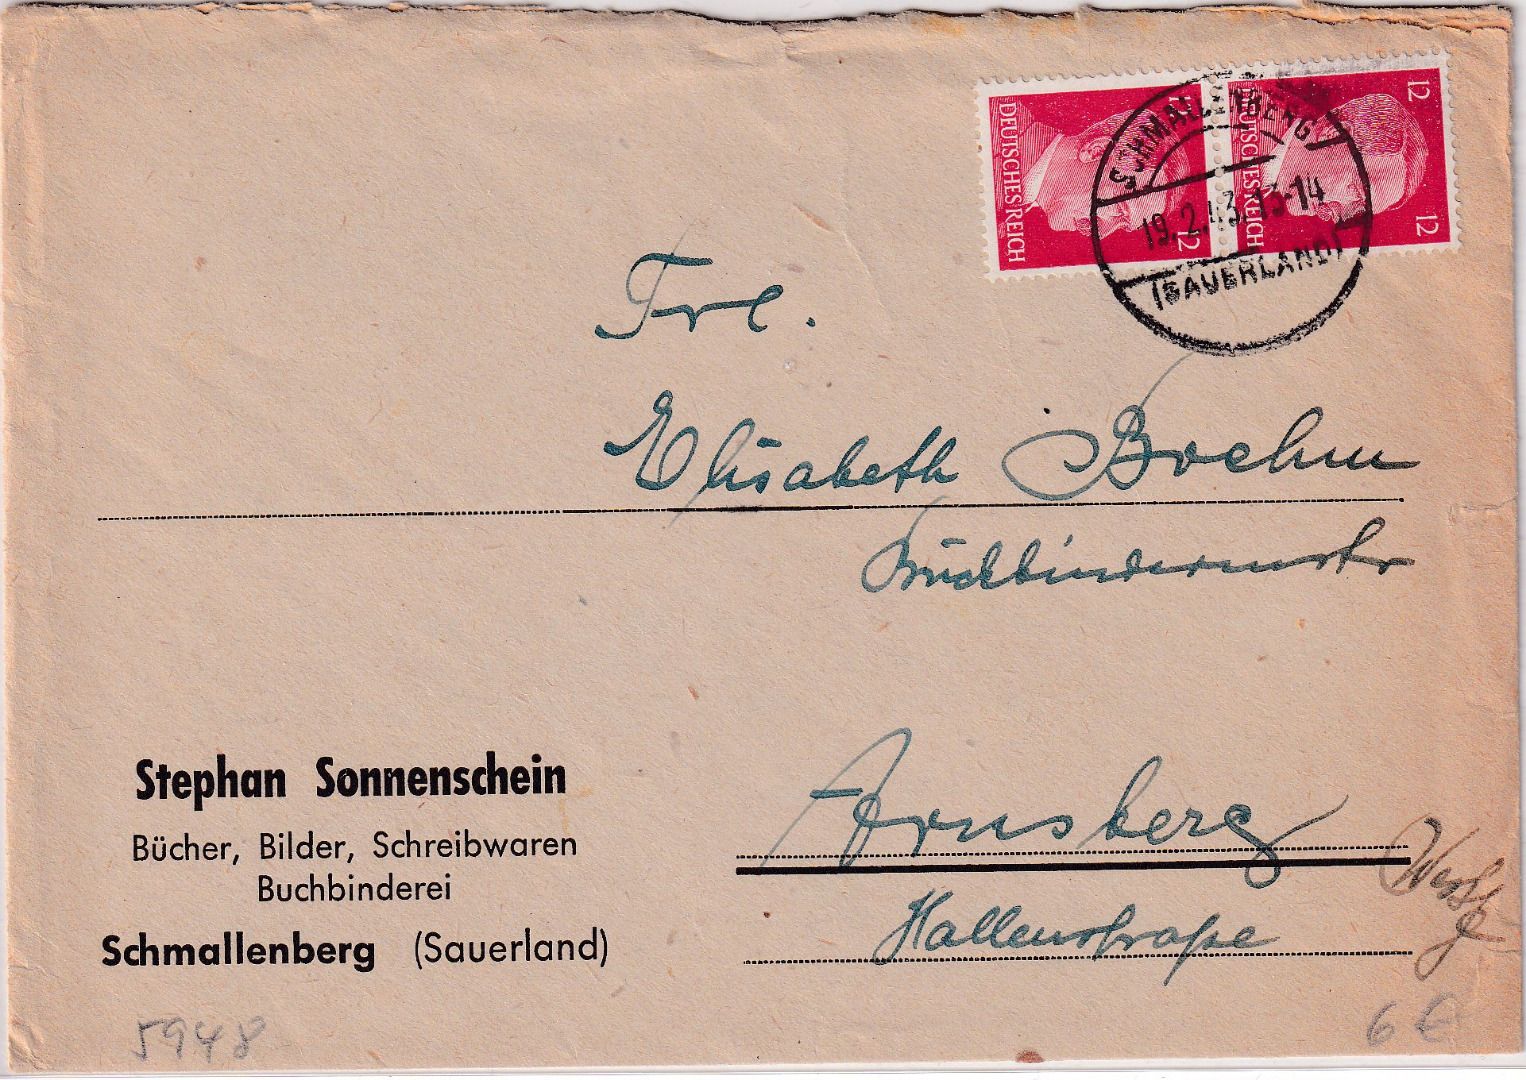 12
DEUTSCHES REICH
12
12
DEUTSCHES REICH
12
SCHMALLENBERG
19.2.43.13-14
(SAUERLAND)
Frl.
Elisabeth Boehm
Buchbindermstr
Arnsberg
Hallenstraße
Westf
Stephan Sonnenschein
Bücher, Bilder, Schreibwaren
Buchbinderei
Schmallenberg (Sauerland)
5948
6 €